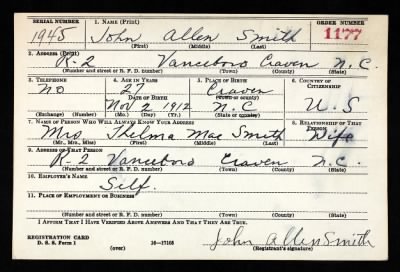 SERIAL NUMBER 1. NAME (Print) ORDER NUMBER
1945 John Allen Smith 1177
(First) (Middle) (Last)
2. ADDRESS (Print)
R-2 Vanceboro Craven N.C.
(Number and street or R. F. D. number) (Town) (County) (State)
3. TELEPHONE 4. AGE IN YEARS 5. PLACE OF BIRTH 6. COUNTRY OF CITIZENSHIP
no 27 Craven
DATE OF BIRTH (Town or county)
Nov 2 1912 N.C U.S
(Exchange) (Number) (Mo.) (Day) (Yr.) (State or country)
7. NAME OF PERSON WHO WILL ALWAYS KNOW YOUR ADDRESS 8. RELATIONSHIP OF THAT PERSON
Mrs Thelma Mae Smith Wife
(Mr., Mrs., Miss) (First) (Middle) (Last)
9. ADDRESS OF THAT PERSON
R-2 Vanceboro Craven N.C.
(Number and street or R. F. D. number) (Town) (County) (State)
10. EMPLOYER'S NAME
Self.
11. PLACE OF EMPLOYMENT OR BUSINESS
(Number and street or R. F. D. number) (Town) (County) (State)
I AFFIRM THAT I HAVE VERIFIED ABOVE ANSWERS AND THAT THEY ARE TRUE.
REGISTRATION CARD
D. S. S. Form 1 (over) 16—17105 John Allen Smith
(Registrant's signature)